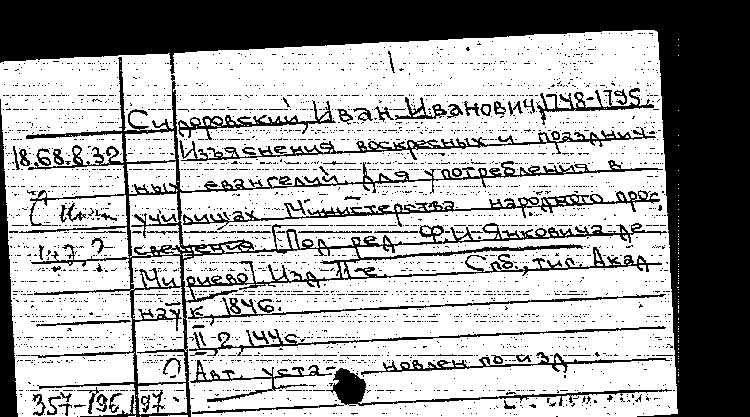 1.
Сидоровский, Иван Иванович, 1748-1795.
18.68.8.32
Изъяснения воскресных и празднич-
ных евангелий. Для употребления в
училищах Министерства народного прос-
свещения [Под ред. Ф.И. Янковича де
Мириево] Изд. 11-е. Спб., тип. Акад
наук, 1846.
II, 2, 144 с.
Авт. уста- новлен по изд.
357-196,197.